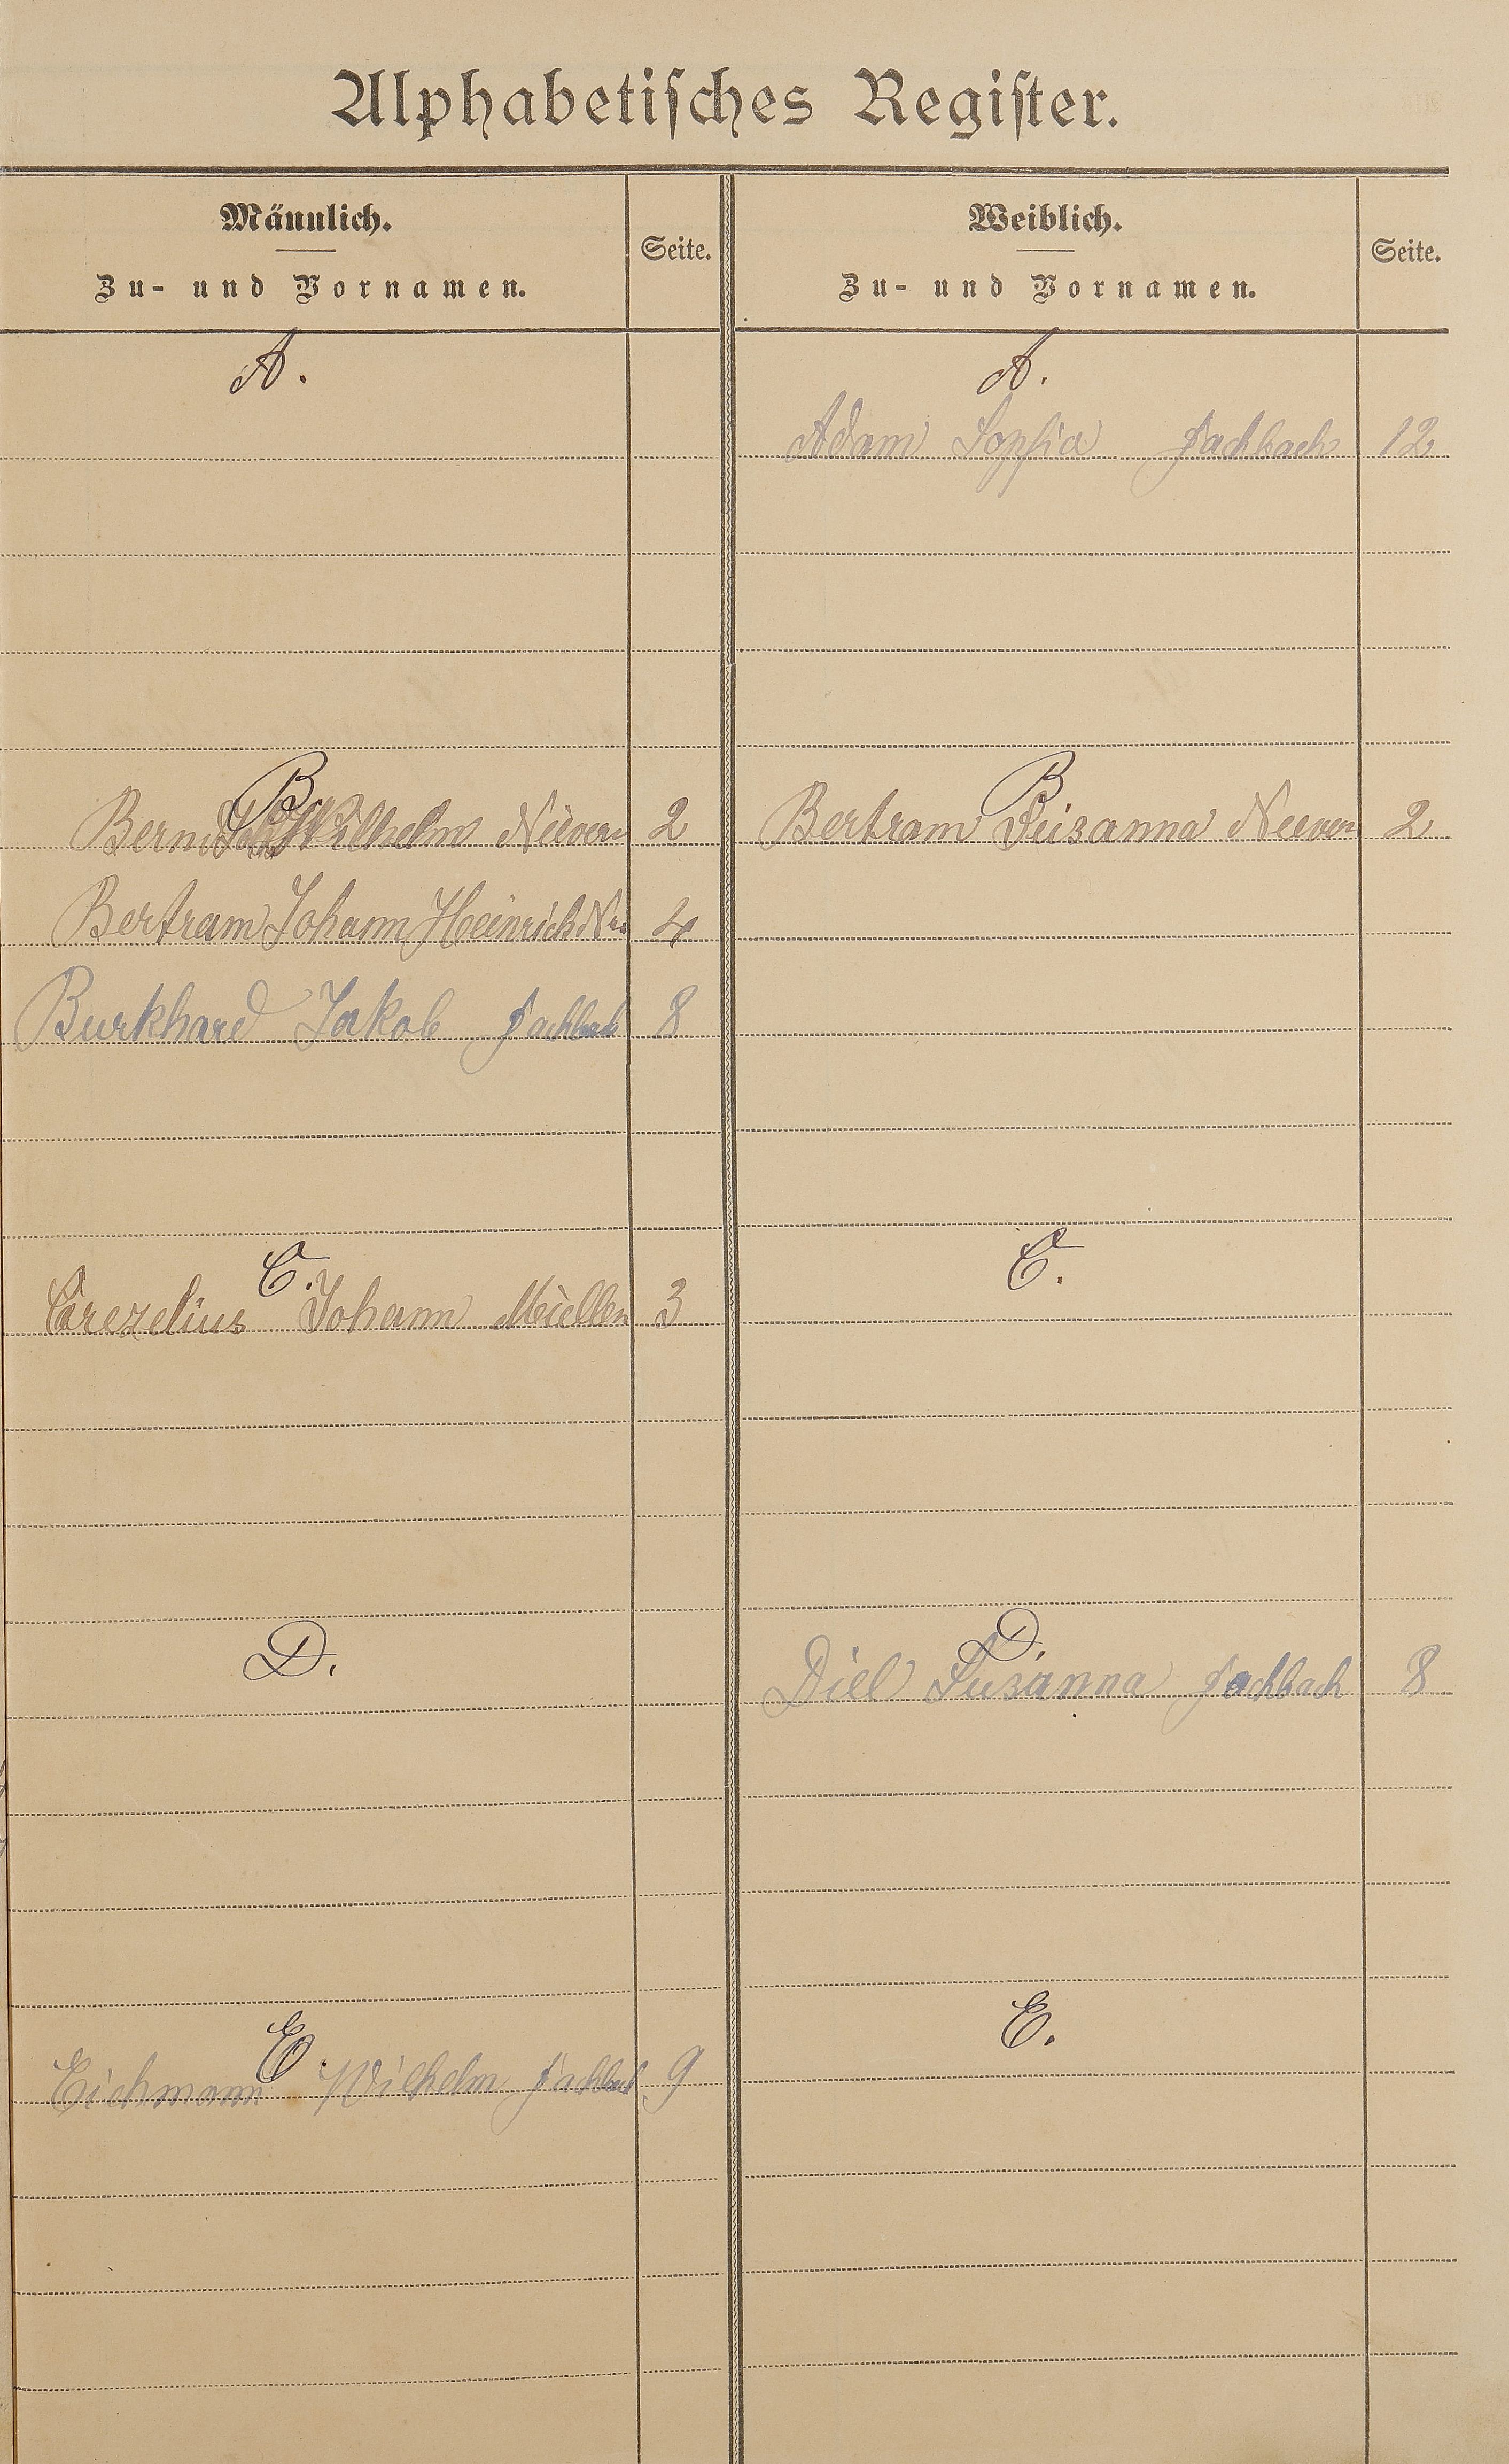 Alphabetisches Register.
Männlich.
Zu- und Vornamen.
Seite.
A.
B.
Wilhelm Nievern 2
Bertram Johann Heinrich 4
Burkhard Jakob Fachbach 8
C.
Crezelius Johann Miellen 3
D.
E.
Eichmann Wilhelm Fachbach 9
Weiblich.
Zu- und Vornamen.
Seite.
A.
Adam Sophia Fachbach 12
B
Bertram Susanna Nievern 2
C.
D.
Diel Susanna Fachbach 8
E.